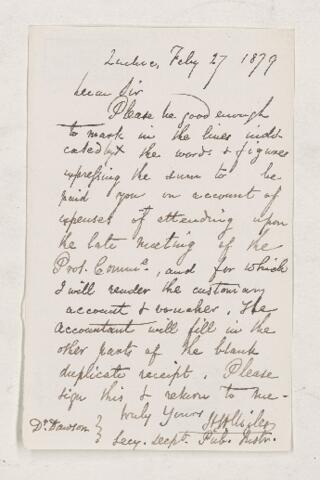 Quebec, Feby 27 1879
Dear Sir
Please be good enough
to mark in the lines indi-
cated by X the words & figures
expressing the sum to be
paid you on account of
expenses of attending upon
the late meeting of the
Prot. Commee, and for which
I will render the customary
account & voucher. The
Accountant will fill in the
other parts of the blank
duplicate receipt. Please
sign this & return to me -
truly Yours
Dr. Dawson } Secy. Dept. Pub. Instr.